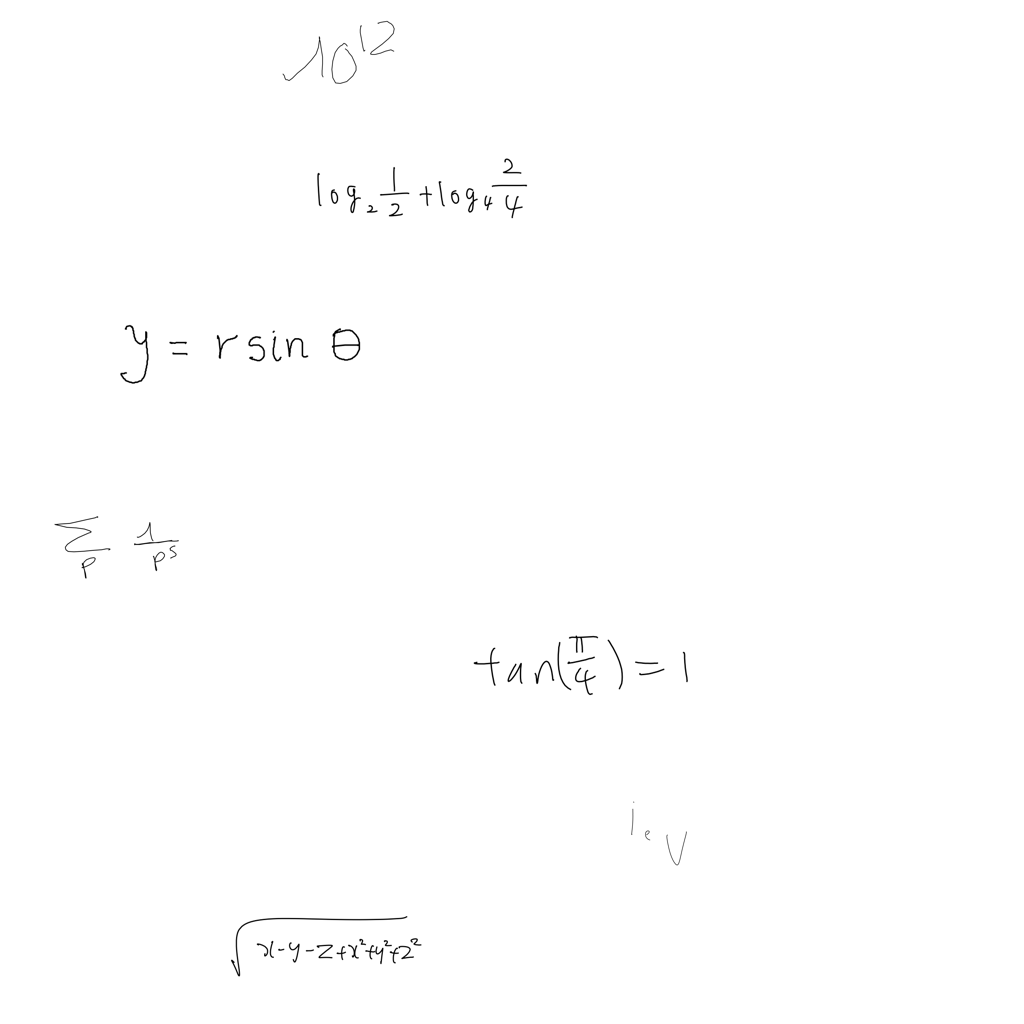 10^{12}
\log_2 \frac{1}{2} + \log_4 \frac{2}{4}
y = r \sin \theta
\sum_p \frac{1}{p^s}
\tan(\frac{\pi}{4}) = 1
i_e V
\sqrt{x-y-z+x^2+y^2+z^2}